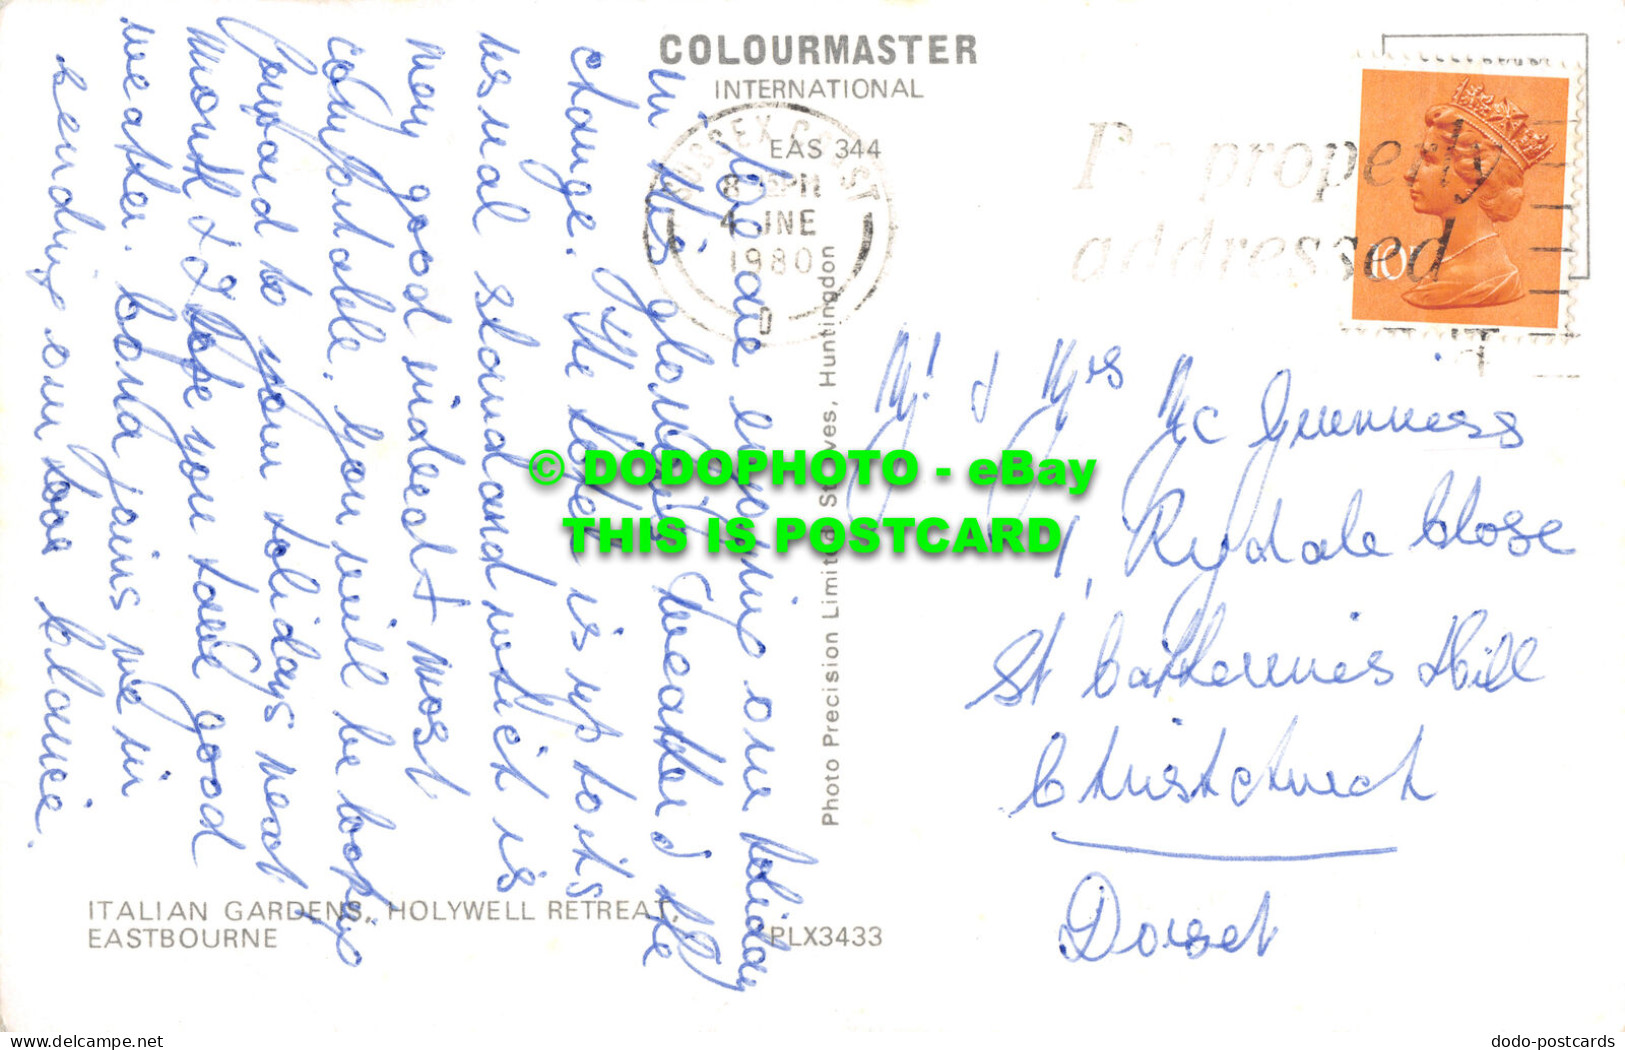 COLOURMASTER
INTERNATIONAL
EAS 344
SUSSEX COAST
8 PM
4 JNE
1980
D
Be properly
addressed
10P
We are enjoying our holiday
in this glorious weather & the
change. The hotel is up to its
usual standard which is
very good indeed & most
comfortable. You will be looking
forward to your holidays next
month & I hope you have good
weather. Dora joins me in
sending our love
Photo Precision Limited, St. Ives, Huntingdon
Mr & Mrs McGuenness
1, Rydale Close
St Catherines Hill
Christchurch
Dorset
ITALIAN GARDENS, HOLYWELL RETREAT,
EASTBOURNE
PLX3433
© DODOPHOTO - eBay
THIS IS POSTCARD
dodo-postcards